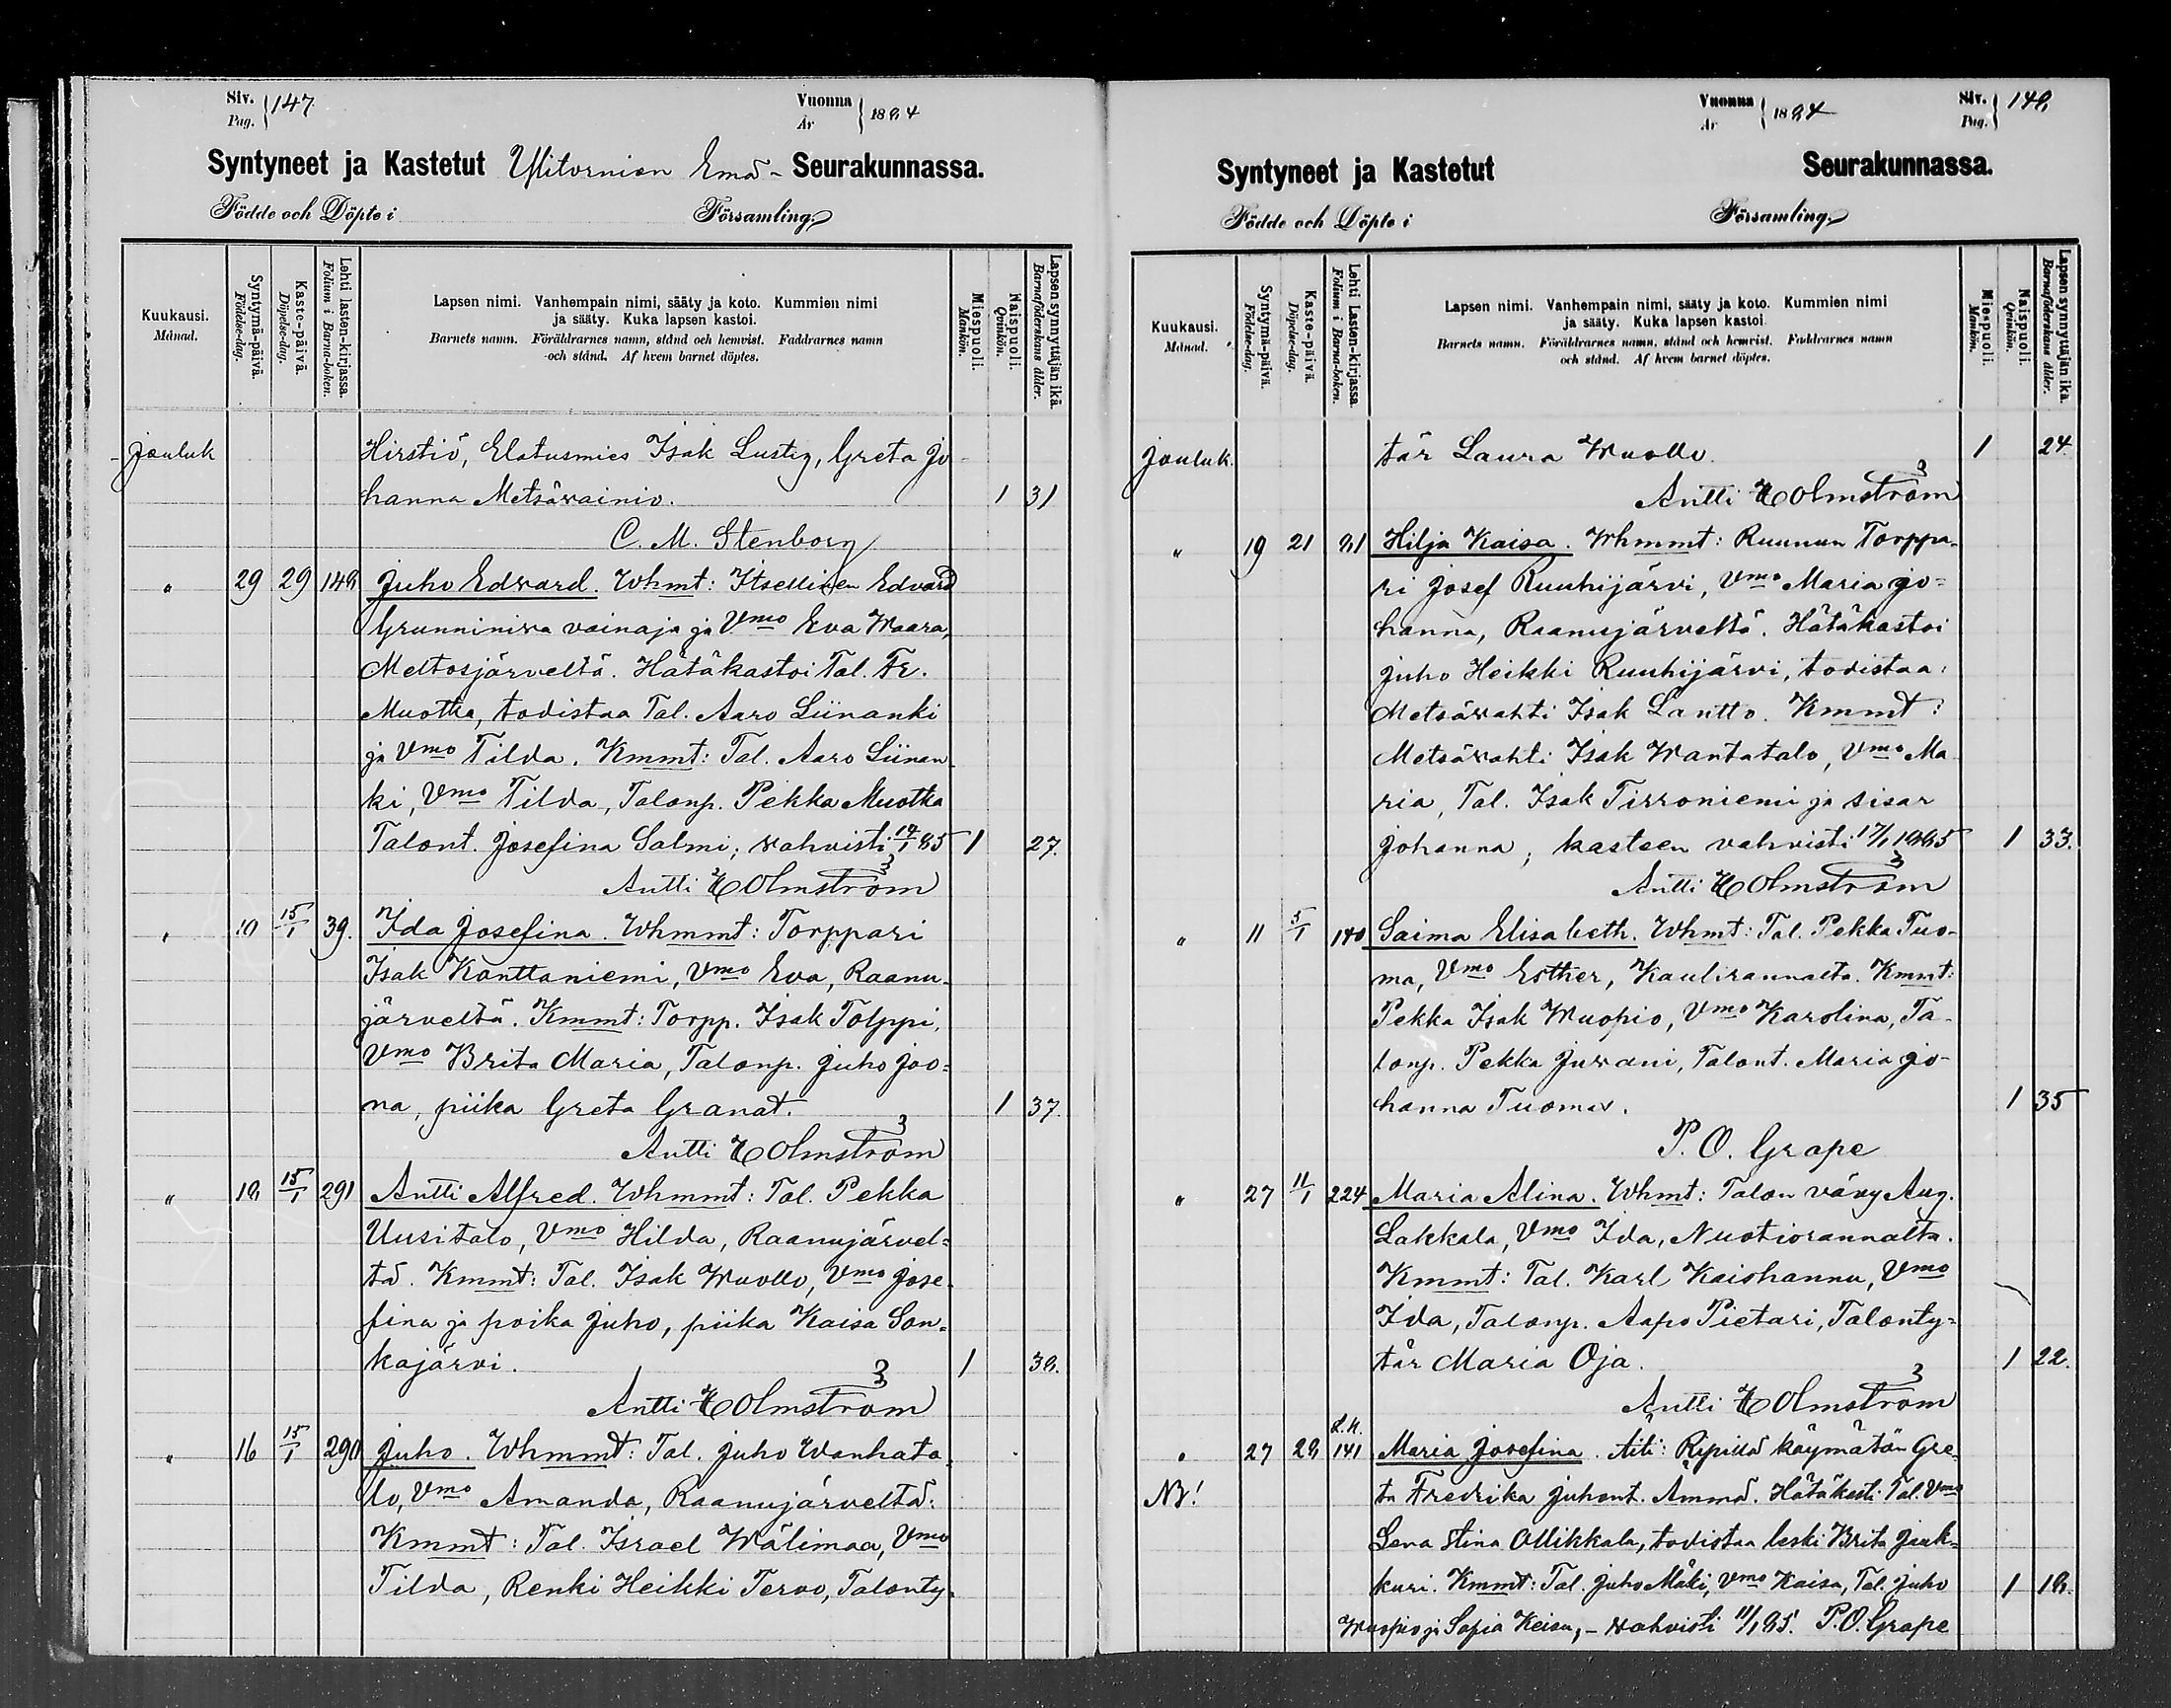 Siv. Pag. 147
Vuonna År 1884
Syntyneet ja Kastetut Ylitornion Emä- Seurakunnassa.
Födde och Döpte i Församling.
Kuukausi. Månad.
Syntymä-päivä. Födelse-dag.
Kaste-päivä. Döpelse-dag.
Lehti lasten-kirjassa. Folium i Barna-boken.
Lapsen nimi. Vanhempain nimi, sääty ja koto. Kummien nimi
ja sääty. Kuka lapsen kastoi.
Barnets namn. Föräldrarnes namn, stånd och hemvist. Faddrarnes namn
och stånd. Af hvem barnet döptes.
Miespuoli. Mankön.
Naispuoli. Qvinkön.
Lapsen synnyttäjän ikä. Barnaföderskans ålder.
Jouluk Hirstiö, Elatusmies Isak Lustig, Greta Jo
hanna Metsäwainio. 1 31
C. M. Stenborg
" 29 29 148 Juho Edward. Whmt: Itsellinen Edvard
Grunniniwa vainaja ja Vmo Eva Waara,
Meltosjärveltä. Hätäkastoi Tal. Fr.
Muotka, todistaa Tal. Aaro Liinanki
ja Vmo Tilda. Kmmt: Tal. Aaro Liinan
ki, Vmo Tilda, Talonp. Pekka Muotka
Talont. Josefina Salmi; vahvisti 14/1 85 1 27.
Antti Holmström
" 10 15/1 39. Ida Josefina. Whmmt: Torppari
Isak Konttaniemi, Vmo Eva, Raanu-
järveltä. Kmmt: Torpp. Isak Tolppi,
Vmo Brita Maria, Talonp. Juho Joo=
na, piika Greta Granat. 1 37.
Antti Holmström
" 18 15/1 291 Antti Alfred. Whmmt: Tal. Pekka
Uusitalo, Vmo Hilda, Raanujärvel=
tä. Kmmt: Tal. Isak Wuollo, Vmo Jose-
fina ja poika Juho, piika Kaisa Son=
kajärvi. 1 38.
Antti Holmström
" 16 15/1 290 Juho. Whmmt: Tal. Juho Wanhata-
lo, Vmo Amanda, Raanujärveltä.
Kmmt: Tal. Israel Wälimaa, Vmo
Tilda, Renki Heikki Tervo, Talonty-
Vuonna År 1884
Siv. Pag. 148
Syntyneet ja Kastetut Seurakunnassa.
Födde och Döpte i Församling.
Kuukausi. Månad.
Syntymä-päivä. Födelse-dag.
Kaste-päivä. Döpelse-dag.
Lehti Lasten-kirjassa. Folium i Barna-boken.
Lapsen nimi. Vanhempain nimi, sääty ja koto. Kummien nimi
ja sääty. Kuka lapsen kastoi.
Barnets namn. Föräldrarnes namn, stånd och hemvist. Faddrarnes namn
och stånd. Af hvem barnet döptes.
Miespuoli. Mankön.
Naispuoli. Qvinkön.
Lapsen synnyttäjän ikä. Barnaföderskans ålder.
Jouluk. tär Laura Wuollo. 1 24
Antti Holmström
" 19 21 81 Hilja Kaisa. Whmmt: Ruunun Torppa-
ri Josef Ruuhijärvi, Vmo Maria Jo=
hanna, Raanujärveltä. Hätäkastoi
Juho Heikki Ruuhijärvi, todistaa:
Metsäwahti Isak Lantto. Kmmt:
Metsäwahti Isak Wantatalo, Vmo Ma
ria, Tal. Isak Tirroniemi ja sisar
Johanna; kasteen vahvisti 17/1 1885 1 33.
Antti Holmström
" 11 5/1 140 Saima Elisabeth. Whmt: Tal. Pekka Tuo-
ma, Vmo Esther, Kaulirannalta. Kmmt:
Pekka Isak Wuopio, Vmo Karolina, Ta-
lonp. Pekka Juwani, Talont. Maria Jo-
hanna Tuomas. 1 35
P. O. Grape
" 27 11/1 224 Maria Alina. Whmt: Talon vävy Aug.
Lakkala, Vmo Ida, Nuotiorannalta.
Kmmt: Tal. Karl Kaishannu, Vmo
Ida, Talonp. Aapo Pietari, Talonty=
tär Maria Oja. 1 22.
Antti Holmström
" 27 28 141 Maria Josefina. Äiti: Ripillä käymätön Gre
NB! ta Fredrika Juhont. Ämmä. Hätäkasti Tal. Vmo
Lena Stina Ollikkala, todistaa leski Brita Jauk=
kuri. Kmmt: Tal. Juho Mäki, Vmo Kaisa, Tal. Juho 1 18.
Wuopio ja Sofia Keisu, - vahvisti 11/1 85. P. O. Grape